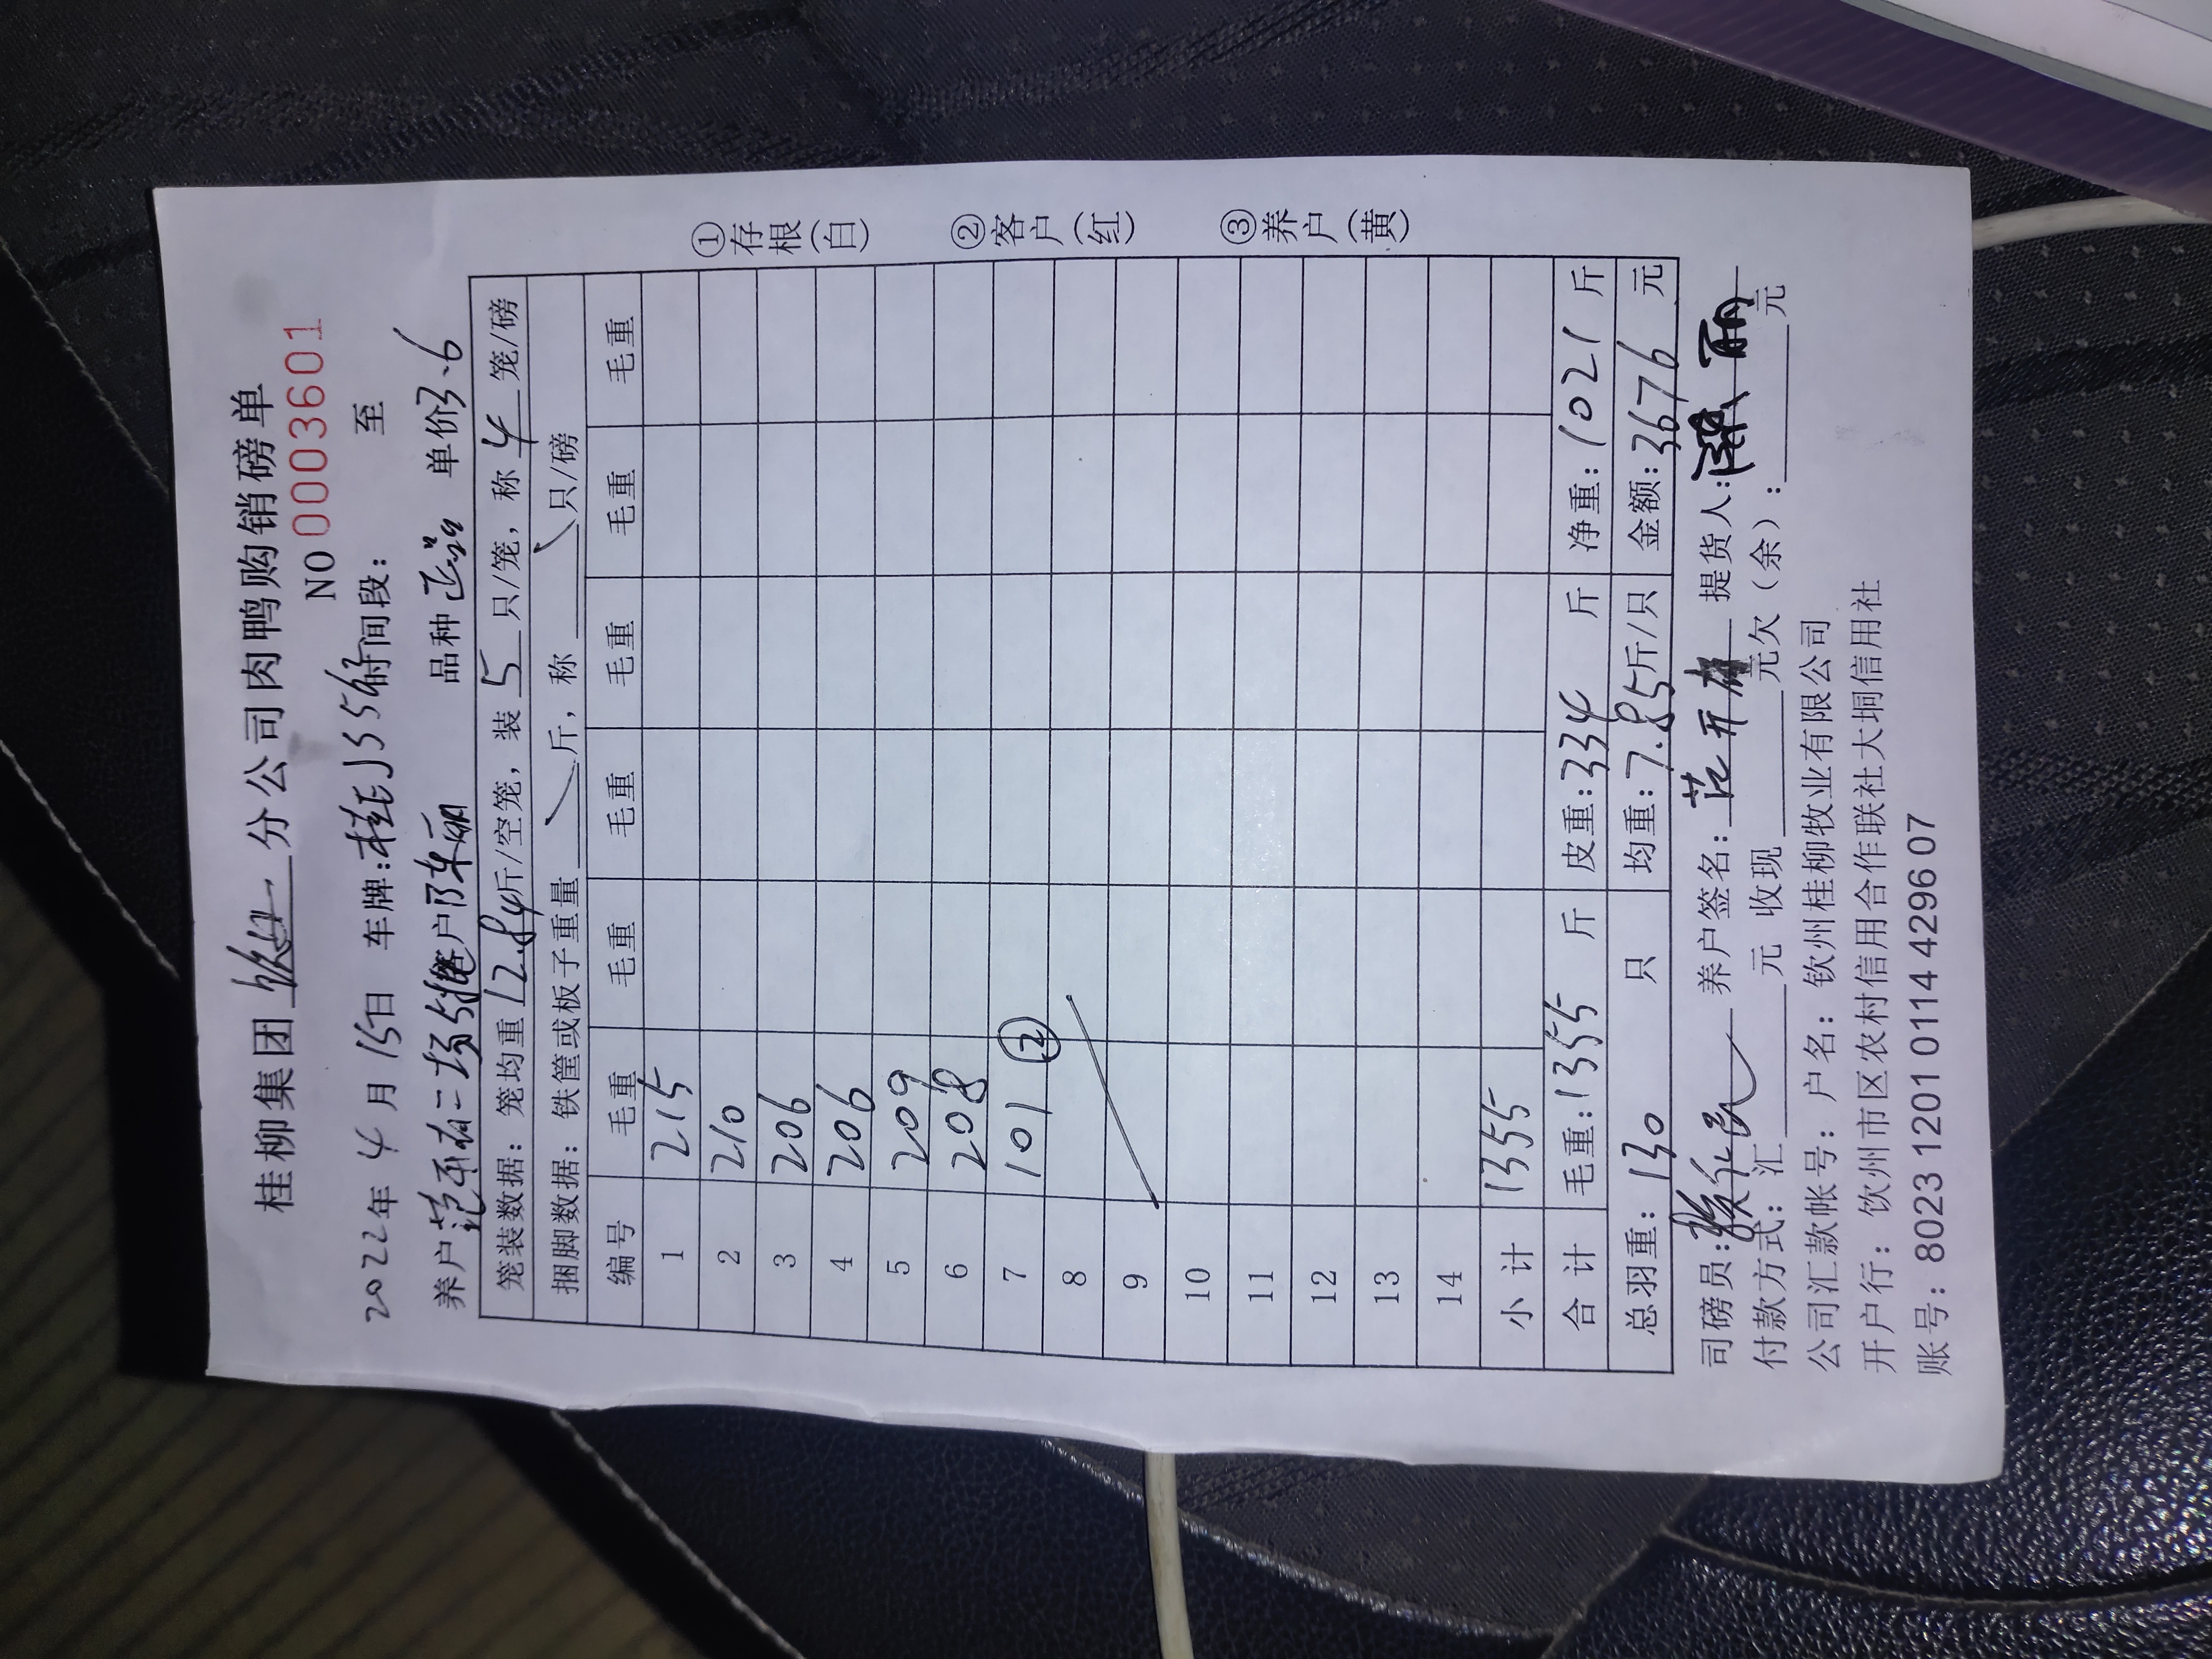 桂柳集团 分公司肉鸭购销磅单
NO 0003601
2022年 4 月 15日 车牌:桂 J556 时间段: 至
养户 范开右二场5 户 陈丽 品种 正品 单价3.6
笼装数据: 笼均重 12.84斤/空笼, 装 5 只/笼, 称 4 笼/磅
捆脚数据: 铁筐或板子重量 / 斤, 称 / 只/磅
编号 毛重 毛重 毛重 毛重 毛重 毛重
1 215
2 210
3 206
4 206
5 209
6 208
7 101 ②
8
9
10
11
12
13
14
小 计 1355
合 计 毛重:1355 斤 皮重:334 斤 净重:1021 斤
总羽重: 130 只 均重: 7.85斤/只 金额:3676 元
司磅员: 养户签名: 范开 提货人:
付款方式: 汇 元 收现 元欠(余): 元
公司汇款帐号: 户名: 钦州桂柳牧业有限公司
开户行: 钦州市区农村信用合作联社大垌信用社
账号: 8023 1201 0114 4296 07
①存根(白)
②客户(红)
③养户(黄)